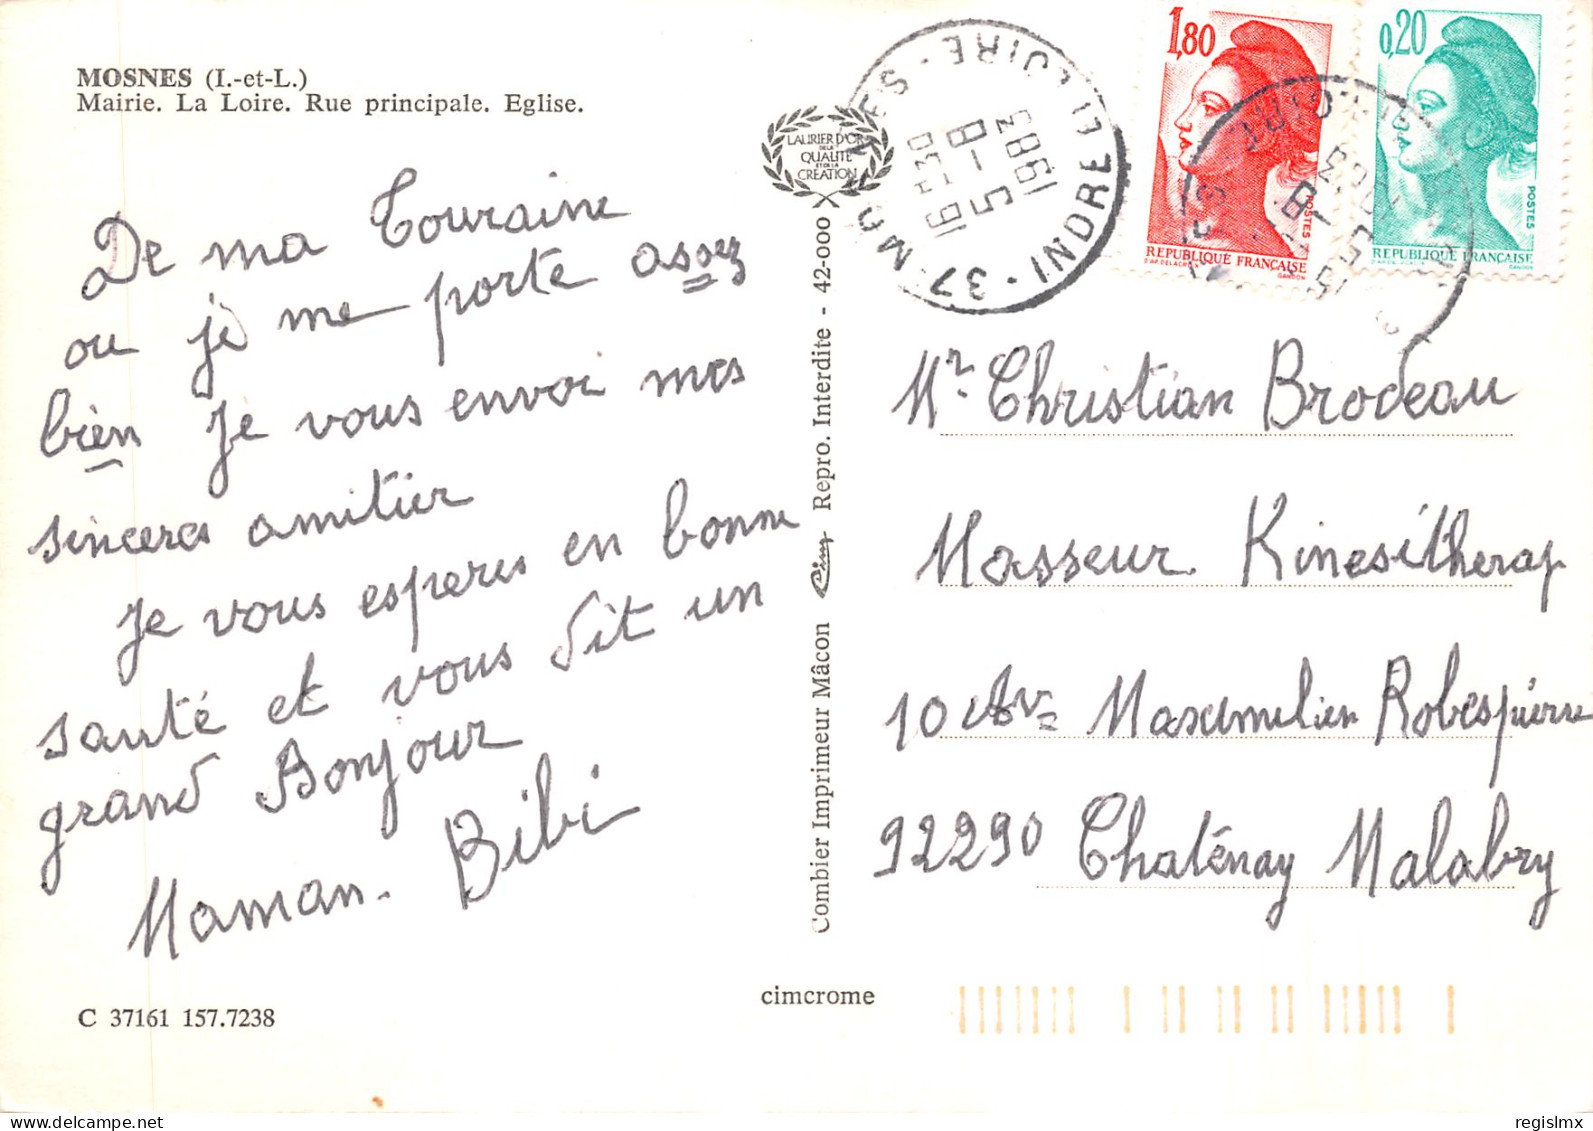 MOSNES (I.-et-L.)
Mairie. La Loire. Rue principale. Eglise.
De ma Touraine
ou je me porte assez
bien je vous envoi mes
sinceres amitier
je vous esperes en bonne
santé et vous dit un
grand Bonjour
Maman. Bibi
C 37161 157.7238
LAURIER D'OR
DE LA
QUALITE
ET DE LA
CREATION
Combier Imprimeur Mâcon Cim Repro. Interdite - 42-000
cimcrome
37 MOSNES - INDRE ET LOIRE
16 H 30
5 - 8
1983
1,80
POSTES
REPUBLIQUE FRANÇAISE
GANDON
0,20
POSTES
REPUBLIQUE FRANÇAISE
GANDON
Mr Christian Brodeau
Masseur Kinesitherap
10 Av= Maximilien Robespierre
92290 Chaténay Malabry
regislmx